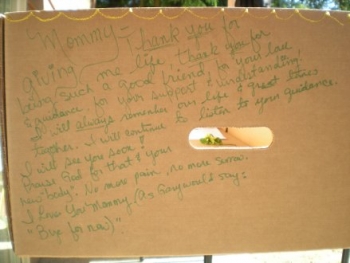 Mommy - Thank you for
giving me life. Thank you for
being such a good friend, for your love
& guidance for your support & understanding!
I will always remember our life & great times
together. I will continue to listen to your guidance.
I will see you soon &
Praise God for that & your
new "body". No more pain, no more sorrow.
I love you Mommy (as Gary would say:
"Bye for now)"